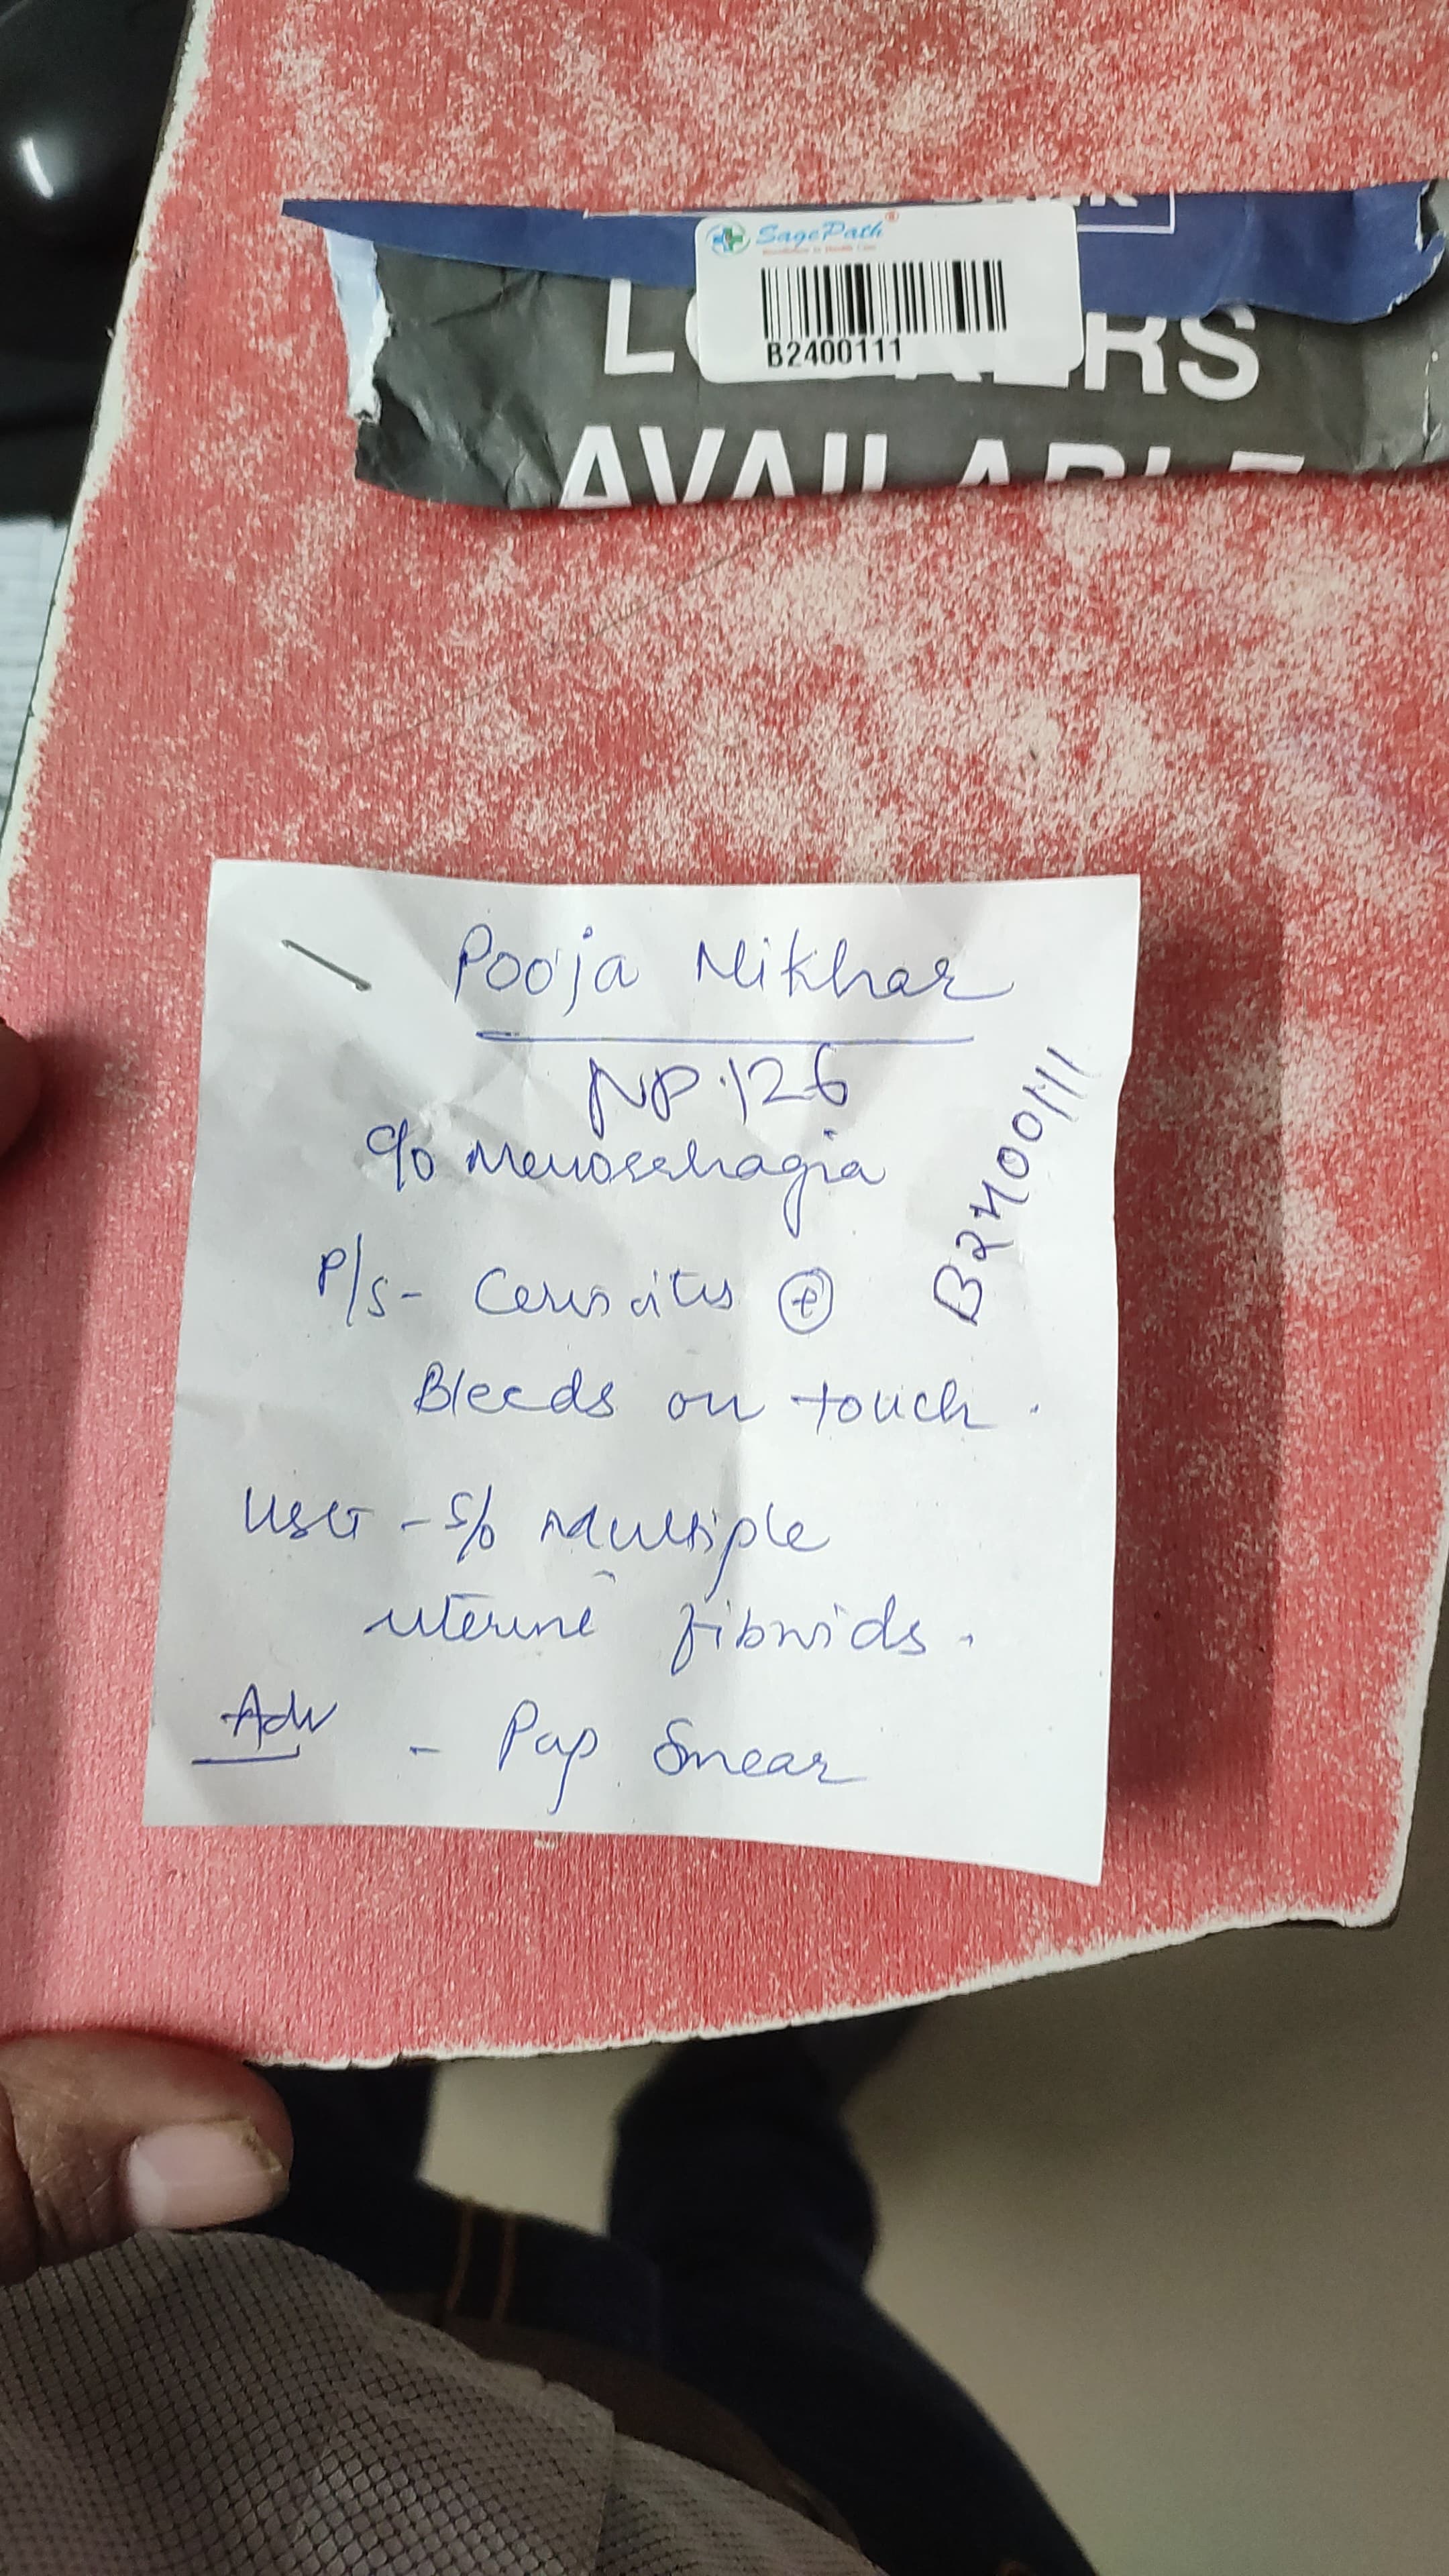 SagePath®
B2400111
RS
AVAILABLE
Pooja Nikhar
NP.126
c/o Menorrhagia
P/S - Cervicitis +
Bleeds on touch.
B2400111
USG - S/o Multiple
uterine fibroids.
Adv - Pap Smear